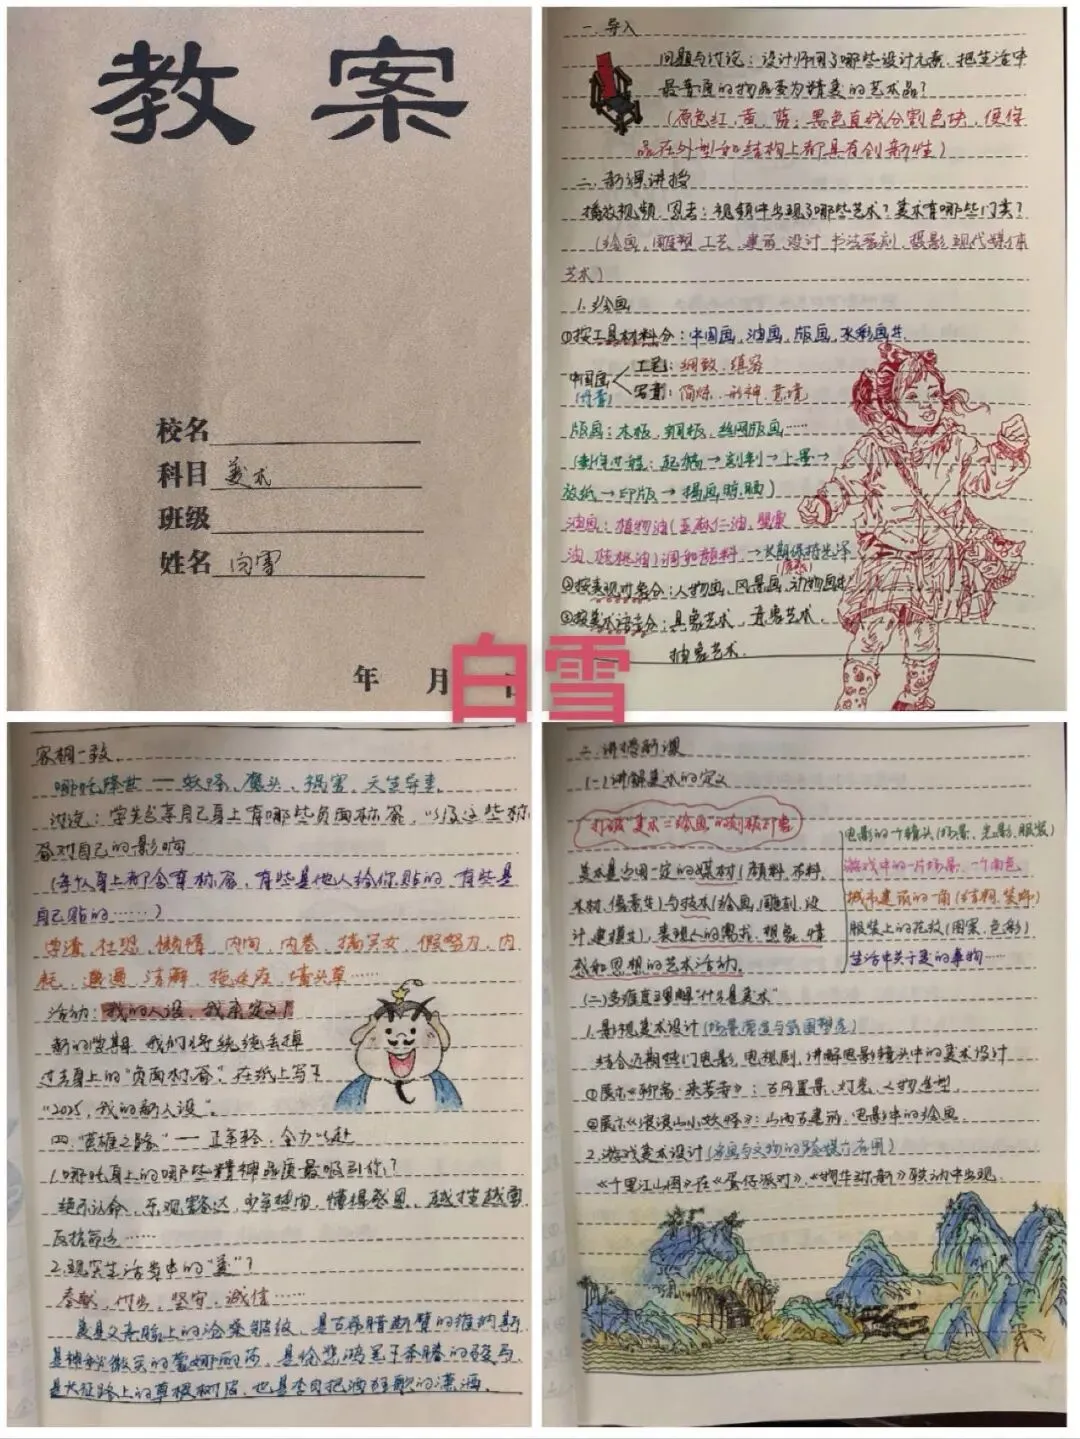 教案
校名
科目 美术
班级
姓名 白雪
年 月 日
白雪
一.导入
问题与讨论：设计师用了哪些设计元素，把生活中
最普通的物品变为精美的艺术品？
（原色红，黄，蓝，黑色直线分割色块，使作
品在外型和结构上都具有创新性）
二.新课讲授
播放视频，思考：视频中出现了哪些艺术？美术有哪些门类？
（绘画，雕塑，工艺，建筑，设计，书法篆刻，摄影，现代媒体
艺术）
1.绘画
①按工具材料分：中国画，油画，版画，水彩画等
中国画
工笔：细致，缜密
（丹青）
写意：简炼，形神，意境
版画：木板，铜板，丝网版画……
（制作过程：起稿→刻制→上墨→
放纸→印版→揭画，晾晒）
油画：植物油（亚麻仁油，罂粟
油，核桃油）调和颜料，→长期保持光泽
②按表现对象分：人物画，风景画，动物画等
③按美术语言分：具象艺术，意象艺术，
抽象艺术.
客栩一致.
哪吒降世——妖怪，魔头，祸害，天生
讨论：学生分享自己身上有哪些负面标签，以及这些标
签对自己的影响
（每个人身上都会有标签，有些是他人给你贴的，有些是
自己贴的……）
学渣，社恐，懒惰，内向，内卷，搞笑女，假努力，内
耗，邋遢，拖延症，墙头草……
活动：我的人设，我来定义！
新的学期，我们将统统丢掉
过去身上的“负面标签”，在纸上写下
“2025，我的新人设”。
四.“英雄之路”——正年轻，全力以赴
1.哪吒身上的哪些精神品质最吸引你？
绝不认命，乐观豁达，少年热血，懂得感恩，越挫越勇，
反抗命运……
2.现实生活当中的“美”？
奉献，付出，坚守，诚信……
美是父亲脸上的沧桑皱纹，是古希腊断臂的维纳斯，
是神秘微笑的蒙娜丽莎，是徐悲鸿笔下奔腾的骏马，
是长征路上的草根树皮，也是李白把酒狂歌的潇洒。
二.讲授新课
（一）讲解美术的定义
打破“美术=绘画”的刻板印象
美术是运用一定的媒材（颜料，布料，
木材，像素等）与技术（绘画，雕刻，设
计，建模等），表现人的需求，想象，情
感和思想的艺术活动。
电影的一个镜头（场景，光影，服装）
游戏中的一片场景，一个角色
城市建筑的一角（结构，装饰）
服装上的花纹（图案，色彩）
生活中关于美的事物……
（二）多维度理解“什么是美术”
1.影视美术设计（场景营造与氛围塑造）
结合近期热门电影，电视剧，讲解电影镜头中的美术设计
①展示《聊斋·兰若寺》：置景，灯光，人物造型
②展示《浪浪山小妖怪》：山西古建筑，电影中的绘画
2.游戏美术设计（绘画与文物的跨媒介应用）
《千里江山图》在《蛋仔派对》，《物华弥新》联动中出现.